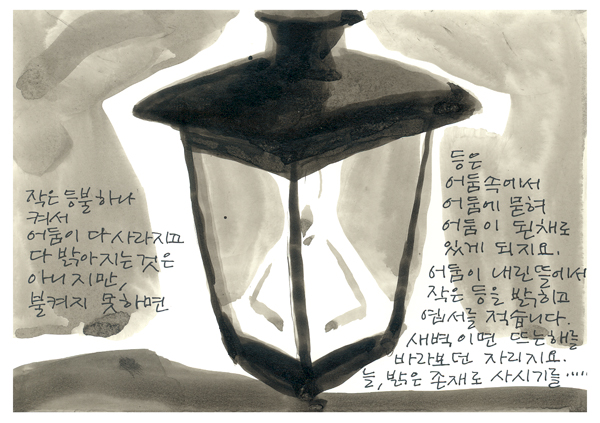 작은 등불 하나
켜서
어둠이 다 사라지고
다 밝아지는 것은
아니지만,
불켜지 못하면
등은
어둠속에서
어둠에 묻혀
어둠이 된채로
있게 되지요.
어둠이 내린 뜰에서
작은 등을 밝히고
엽서를 적습니다.
새벽이면 뜨는해를
바라보던 자리지요.
늘, 밝은 존재로 사시기를.....